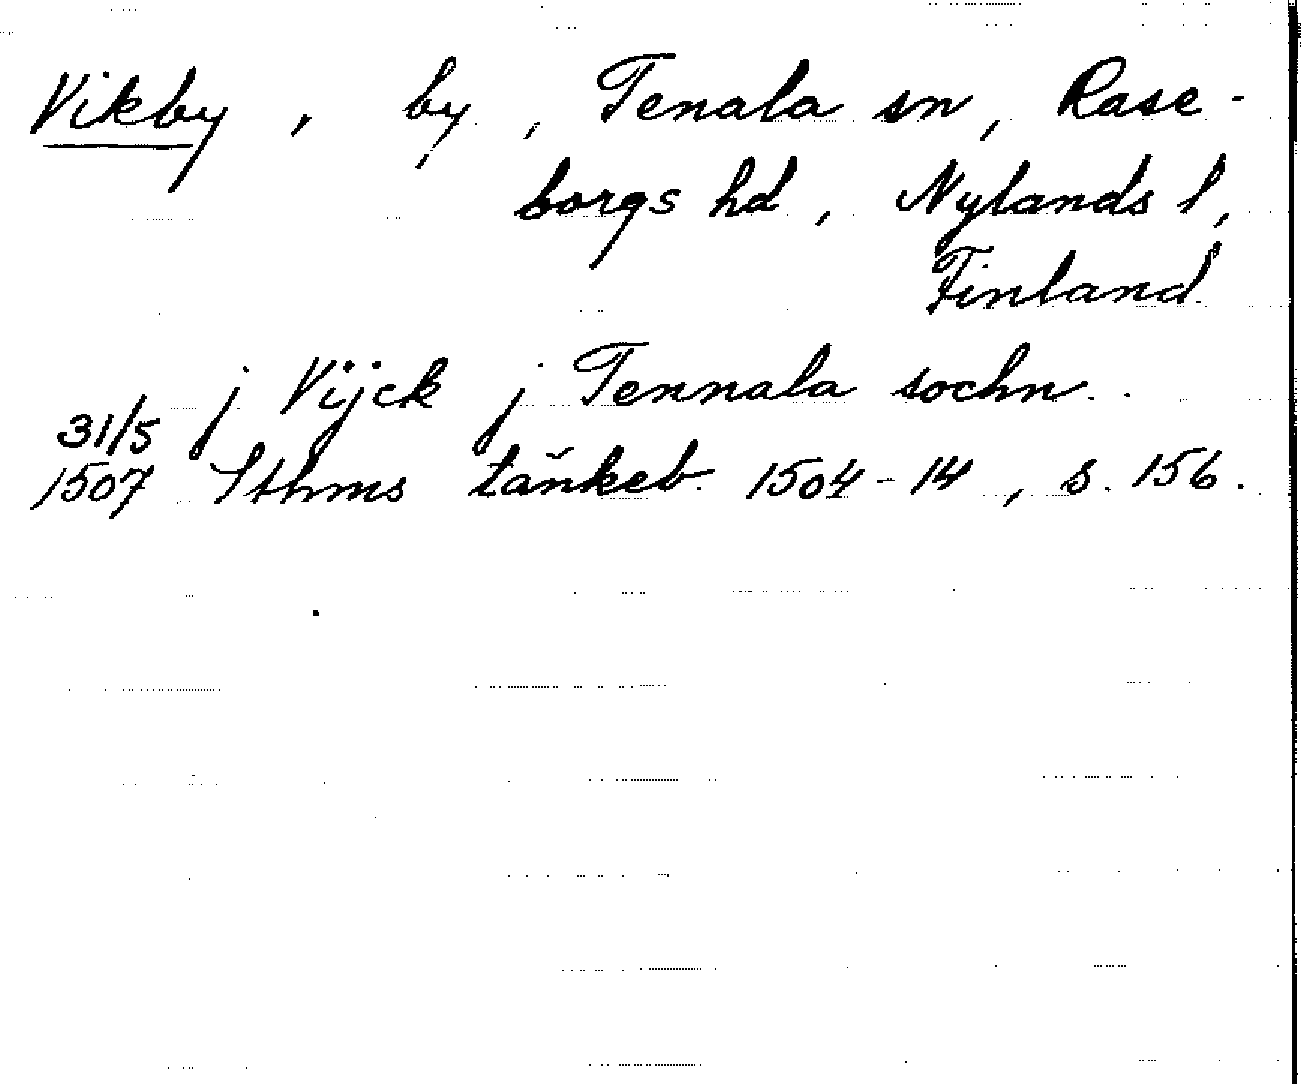 Vikby, by, Tenala sn, Rase-
borgs hd, Nylands l,
Finland
j Vijck j Tennala sochn.
31/5
1507 Sthms tänkeb. 1504-14, s. 156.